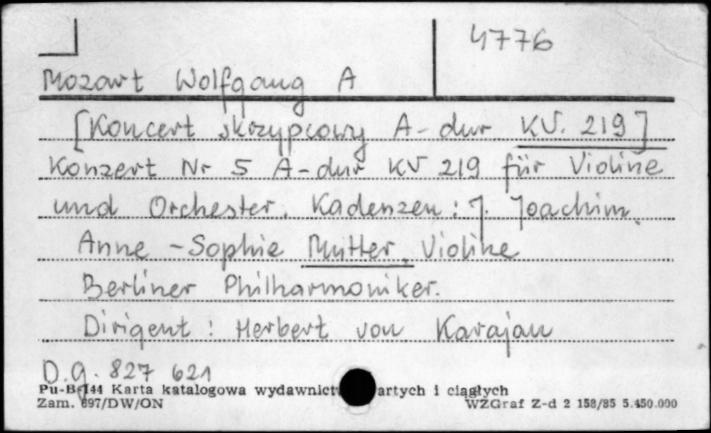 4776
Mozart Wolfgang A
[Koncert skrzypcowy A-dur KV. 219]
Konzert Nr 5 A-dur KV 219 für Violine
und Orchester. Kadenzen: J. Joachim.
Anne-Sophie Mutter, Violine
Berliner Philharmoniker.
Dirigent: Herbert von Karajan
D.g. 827 621
Pu-B-144 Karta katalogowa wydawnict artych i ciągłych
Zam. 697/DW/ON WZGraf Z-d 2 158/85 5.450.000